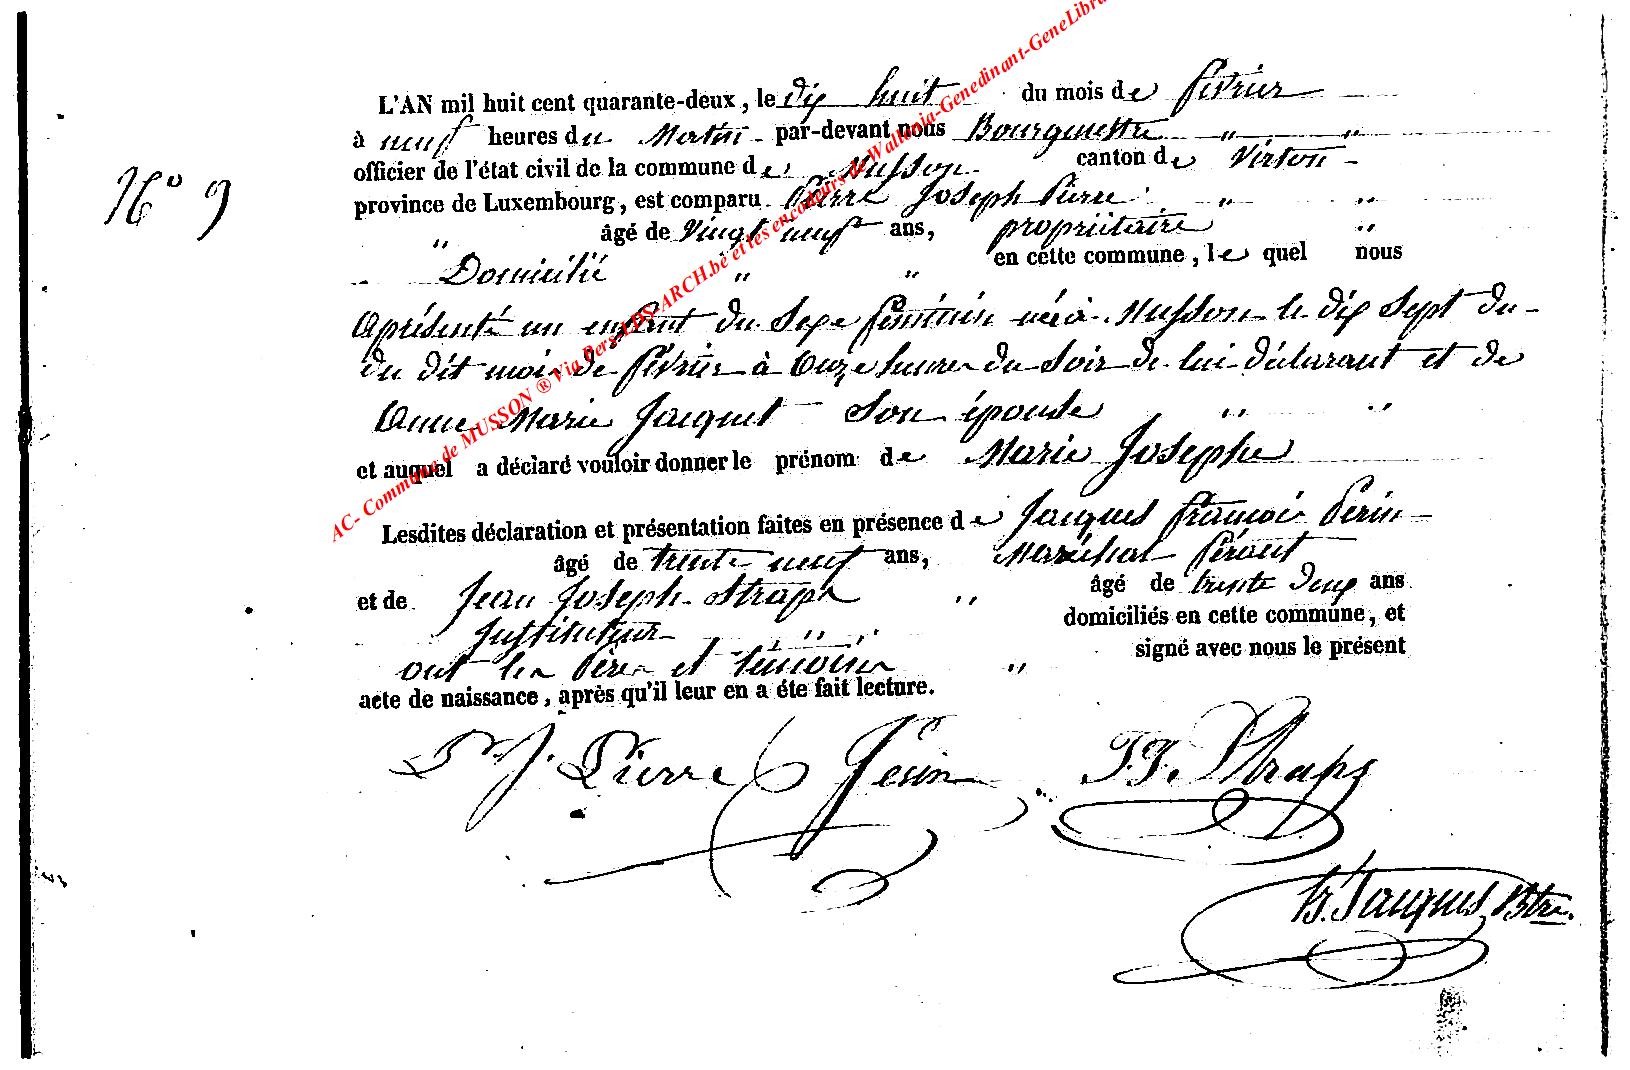 N.º 9
L'AN mil huit cent quarante-deux, le dix huit du mois de février
à neuf heures du Matin par-devant nous Bourgmestre " "
officier de l'état civil de la commune de Musson canton de Virton
province de Luxembourg, est comparu Pierre Joseph Pierre " "
" âgé de Vingt neuf ans, propriétaire "
" Domicilié " " en cette commune, le quel nous
a présenté un enfant du Sexe féminin né à Musson le dix sept du
du dit mois de février à Onze heures du Soir de lui déclarant et de
Anne Marie Jacquet Son épouse " "
et auquel a déclaré vouloir donner le prénom de Marie Josephe
Lesdites déclaration et présentation faites en présence de Jacques François Périn
âgé de trente neuf ans, Maréchal férant
et de Jean Joseph Straps " âgé de trente deux ans
Instituteur " " domiciliés en cette commune, et
ont les Père et témoins " signé avec nous le présent
acte de naissance, après qu'il leur en a éte fait lecture.
P. J. Pierre Perin J. J. Straps
Jacques Btre.
AC- Commune de MUSSON ® Via Pers-LDS-ARCH.be et les encodeurs de Wallonia-Genedinant-GeneLibra